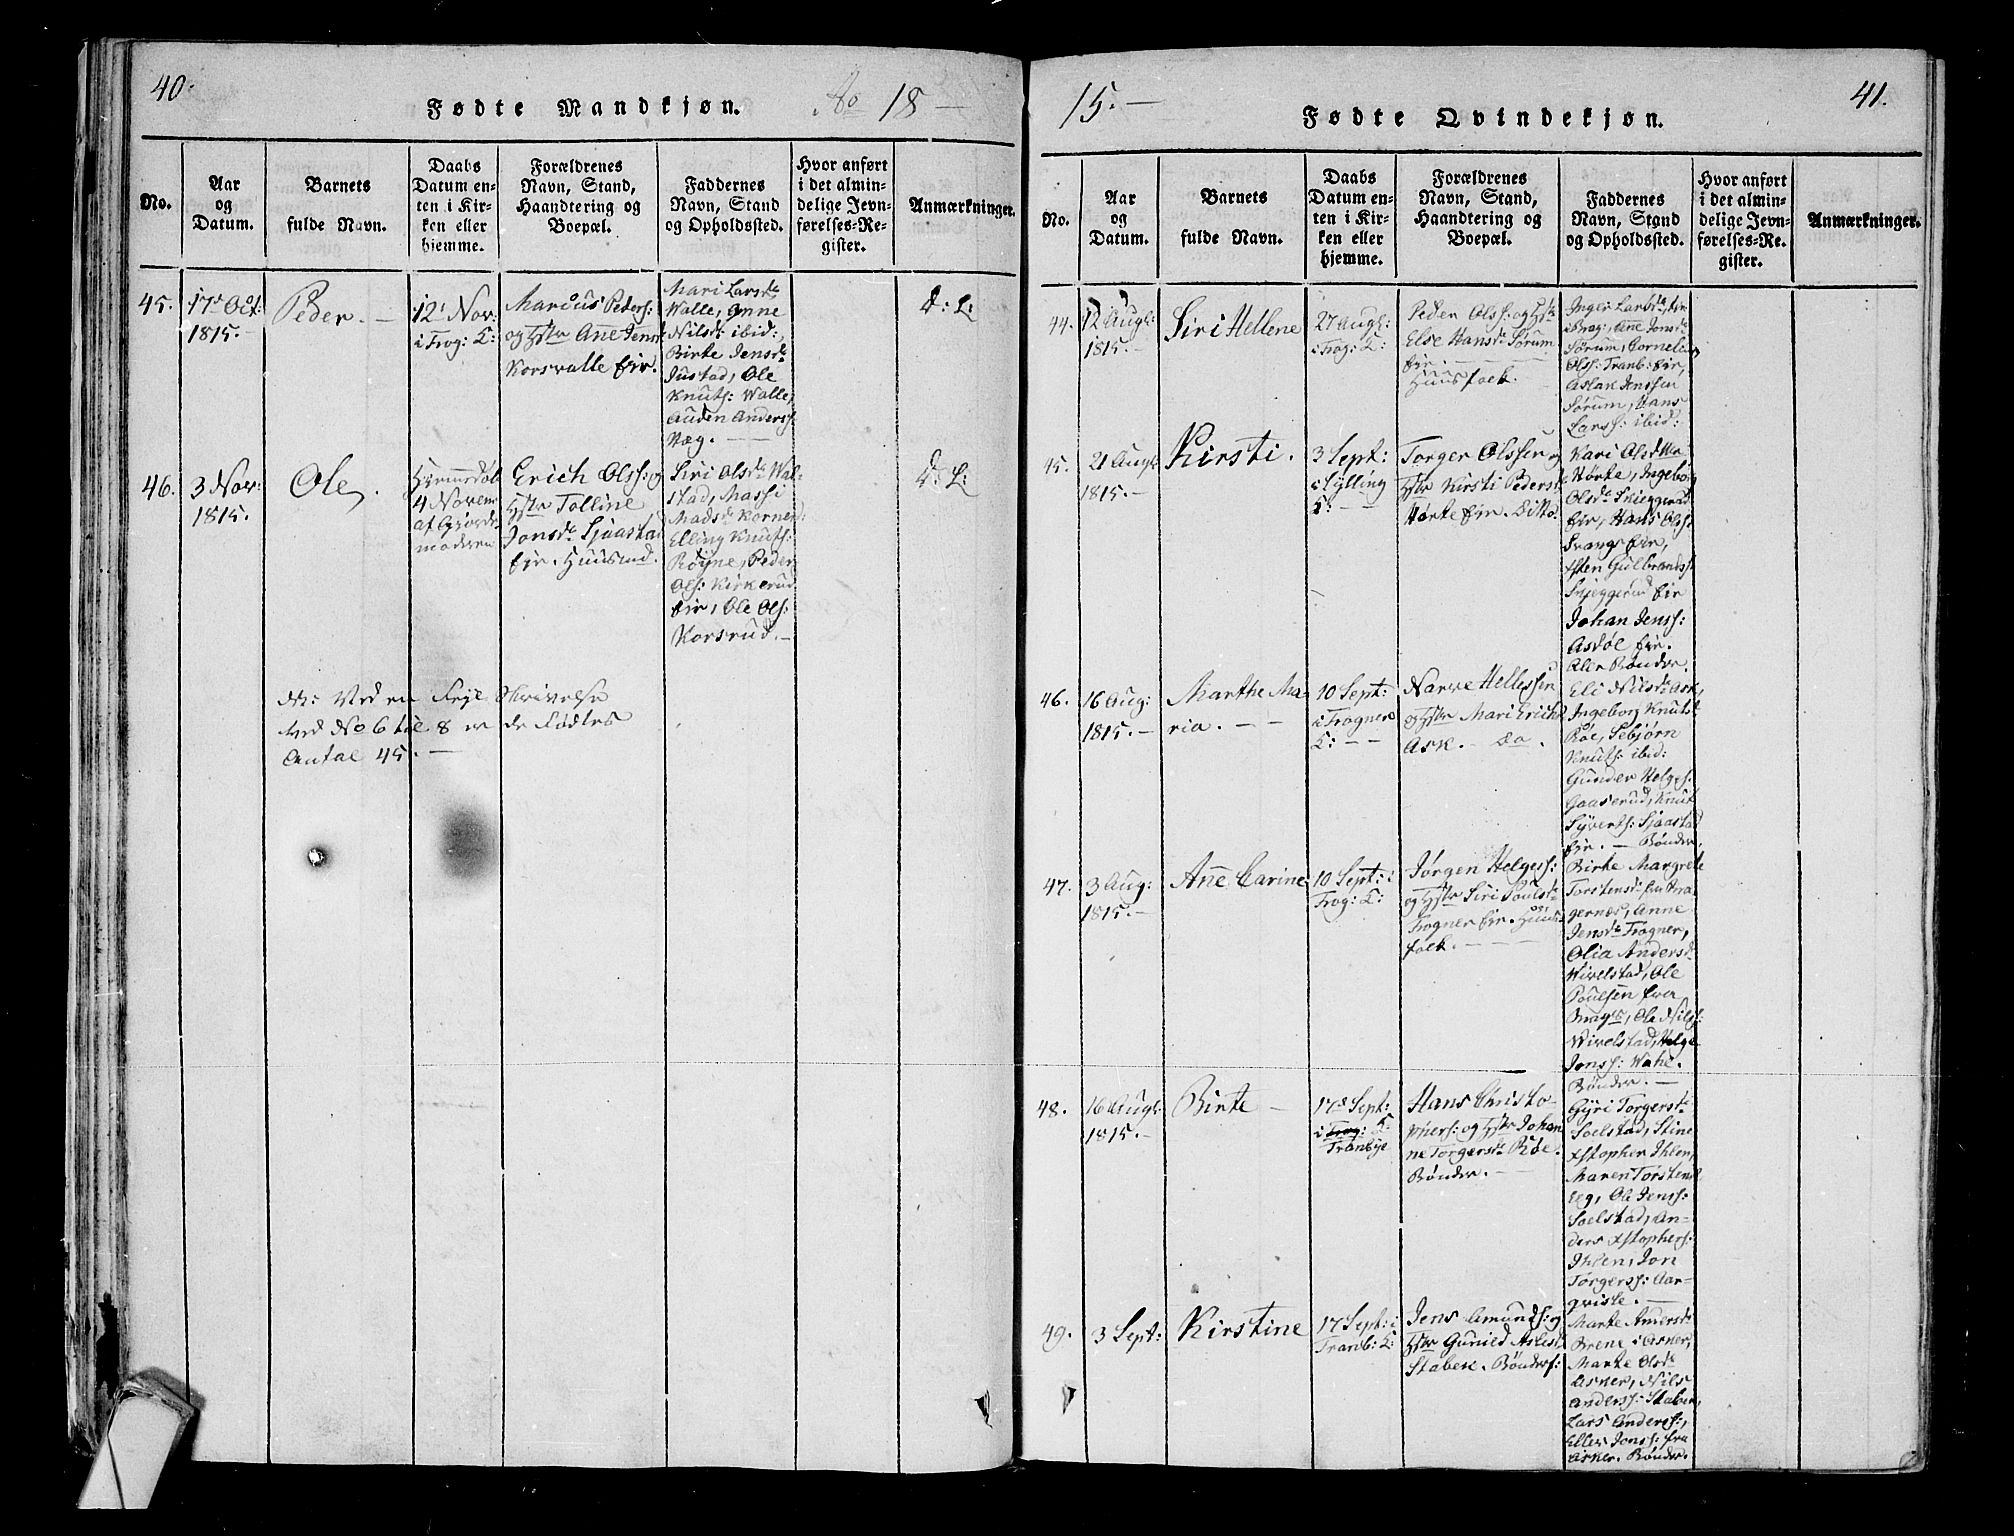 40.
Fødte Mandkjøn. Ao 18 —
No.
Aar
og
Datum.
Barnets
fulde Navn.
Daabs
Datum en-
ten i Kir-
ken eller
hjemme.
Forældrenes
Navn, Stand,
Haandtering og
Boepæl.
Faddernes
Navn, Stand
og Opholdssted.
Hvor anført
i det almin-
delige Jevn-
førelses-Re-
gister.
Anmærkninger.
45.
17 Oct:
1815.
Peder. —
12 Nov:
i Frog: K:
Marcus Peders:
og Hstr Ane Jens
Korsvalle eir.
Mari Larsd
Walle, Anne
Nilsd ibid:,
Birte Jensd
Justad, Ole
Knuts: Walle,
Auden Anderss:
Næg. —
D: L:
46.
3 Nov:
1815.
Ole.
4 Novem
af Gjorde
moderen
Erich Olss: og
Hstr Tolline
Jonsd Sjaastad
eir. Huusmd.
Siri Olsd Wal-
stad, Massi
Madsd Korner
Elling Knuts:
Røyne, Peder
Ols: Kirkerud
eir, Ole Ols:
Korsrud. —
D: L:
Ved en Fejl Skrivelse
ved No 6 til 8 er de Fødtes
Antal 45. —
15. —
41.
Fødte Qvindekjøn.
No.
Aar
og
Datum.
Barnets
fulde Navn.
Daabs
Datum en-
ten i Kir-
ken eller
hjemme.
Forældrenes
Navn, Stand,
Haandtering og
Boepæl.
Faddernes
Navn, Stand
og Opholdssted.
Hvor anført
i det almin-
delige Jevn-
førelses-Re-
gister.
Anmærkninger.
44.
12 Aug:
1815. —
Siri Hellene
27 Aug:
i Frog: K:
Peder Olss: og Hstr
Else Hansd Sørum
eir. —
Huusfolk.
Inger Larsd
i Brag:, Ane Jonsd
Sørum, Cornelius
Olss: Tranb: eir,
Aslak Jenssen
Sørum, Hans
Larss: ibid:
45.
21 Aug:
1815. —
Kirsti.
3 Sept:
i Sylling
K: — —
Torger Olssen og
Hstr Kirsti Pedersd
Hørte eir. Ditto.
Kari Olsd
Hørte, Ingebor
Olsd Skjeggerud
eir, Hans Ols:
eir,
Østen Gulbrands:
Skjeggerud eir
Johan Jenss:
Asdøl eir.
Alle Bønder.
46.
16 Aug:
1815. —
Marthe Ma-
ria. — —
10 Sept:
i Frogner
K: — —
Narve Hellessen
og Hstr Mari Erichs
Ask. — Do.
Eli Nilsd Ask,
Ingeborg Knuts
Røe, Sebjørn
Knuts: ibid:
Gunder Helges:
Gaaserud, Knut
Syverts: Sjaastad
eir. — Bønder.
47.
3 Aug:
1815. —
Añe Carine
10 Sept: i
Frog: K:
Jørgen Helgess:
og Hstr Siri Poulsd
Frogner eir. Huus-
folk. — —
Birte Margrete
Torstensd fra Bra-
gernæs, Anne
Jensd Frogner,
Olia Andersd
Wivelstad, Ole
Poulsen fra
Brags, Ole Nilss:
Wivelstad, Helge
Jonss: Wahl.
Bønder. —
48.
16 Aug:
1815. —
Birte —
17 Sept:
i Frog: K:
Tranbye
Hans Christo-
phers: og Hstr Johan
ne Torgersd Røe.
Bønder. —
Gyri Torgersd
Soelstad, Stine
Xstopher Ihlen,
Maren Torstensd
Eeg, Ole Jenss:
Soelstad, An-
ders Xstophers:
Ihlen, Jon
Torgerss: Aar-
qvisle. —
49.
3 Sept:
Kirstine
17 Sept: i
Tranb: K:
Jens Amunds: og
Hstr Gunild Aslesd
Stabek. Bønderf:
Marte Anersd
Brene i Asker,
Marte Olsd
Asker, Nils
Anderss: Staber,
Lars Anderss:,
Eller Jonss: fra
Asker. Bønder.